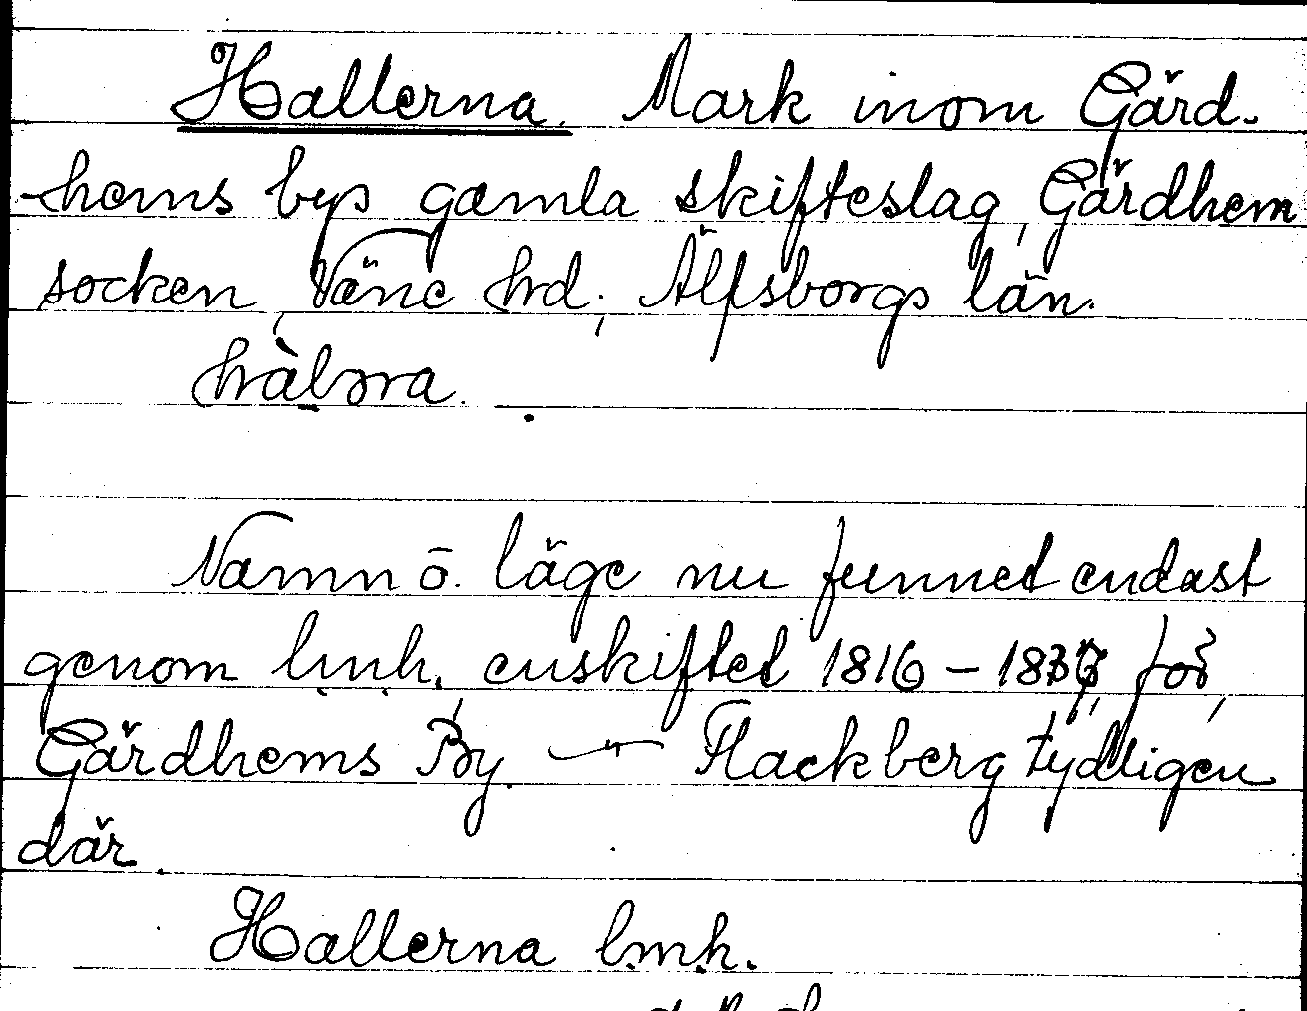 Hallerna. Mark inom Gärd-
hems bys gamla skifteslag, Gärdhem
socken, Väne hrd., Älfsborgs län.
hàlɔra.
Namn o. läge nu funnet endast
genom lmh. enskiftet 1816 – 1837, för
Gärdhems By. — " — Flackberg tydligen
där.
Hallerna lmh.